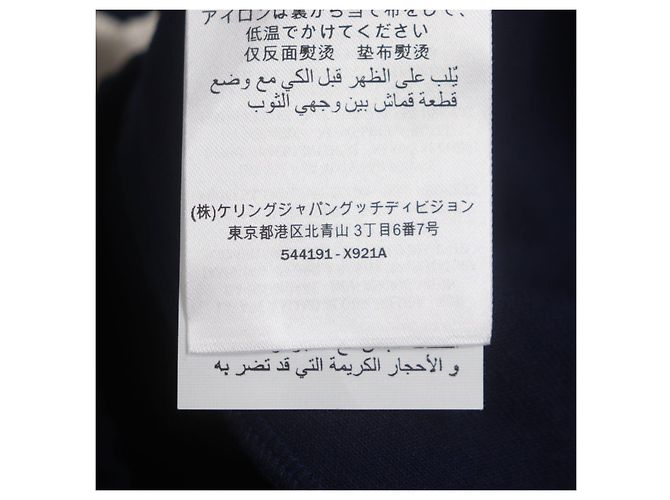 アイロンは裏から当て布をして、
低温でかけてください
仅反面熨烫 垫布熨烫
يُلب على الظهر قبل الكي مع وضع
قطعة قماش بين وجهي الثوب
(株)ケリングジャパングッチディビジョン
東京都港区北青山 3丁目6番7号
544191 - X921A
و الأحجار الكريمة التي قد تضر به